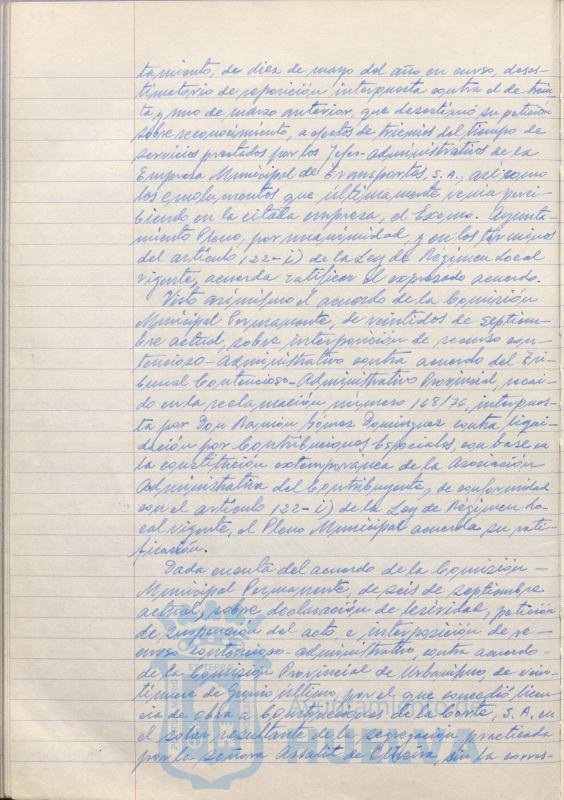 tamiento, de diez de mayo del año en curso, deses-
timatorio de reposición interpuesta contra el de trein-
ta y uno de marzo anterior, que desestimó su petición
sobre reconocimiento, a efectos de trienios del tiempo de
servicios prestados por los Jefes-administrativos de la
Empresa Municipal de Transportes, S.A., así como
los emolumentos que últimamente venía perci-
biendo en la citada empresa, el Excmo. Ayunta-
miento Pleno, por unanimidad, y en los términos
del artículo 122-i) de la Ley de Régimen Local
vigente, acuerda ratificar el expresado acuerdo.
Visto asimismo el acuerdo de la Comisión
Municipal Permanente, de veintidos de septiem-
bre actual, sobre interposición de recurso con-
tencioso-administrativo contra acuerdo del Tri-
bunal Contencioso-Administrativo Provincial, recaí-
do en la reclamación número 168/76, interpues-
ta por Don Ramón Gómez Dominguez contra liqui-
dación por Contribuciones Especiales con base en
la constitución extemporánea de la Asociación
Administrativa del Contribuyente, de conformidad
con el artículo 122-i) de la Ley de Régimen Lo-
cal vigente, el Pleno Municipal acuerda su rati-
ficación.
Dada cuenta del acuerdo de la Comisión-
Municipal Permanente, de seis de septiembre
actual, sobre declaración de lesividad, petición
de suspensión del acto, e interposición de re-
curso contencioso-administrativo, contra acuerdo-
de la Comisión Provincial de Urbanismo, de vein-
tinueve de Junio último, por el que concedió licen-
cia de obra a Construcciones de la Corte, S.A. en
el solar resultante de la segregación practicada
por la señora Assalit de Oliveira, sin la corres-
Ayuntamiento de
HUELVA